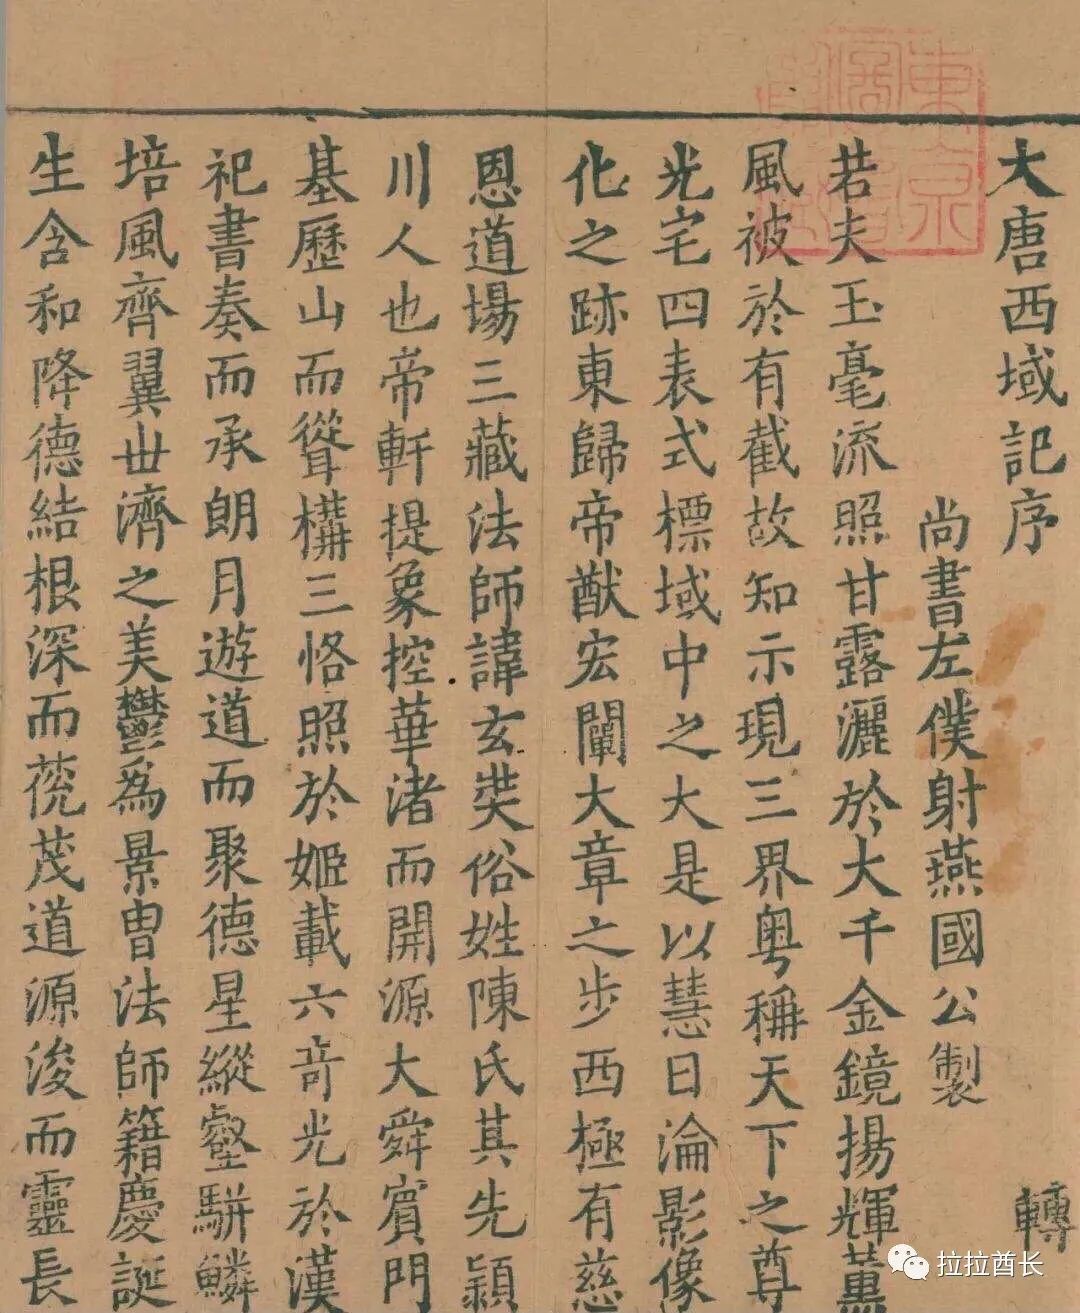 大唐西域記序
轉
尚書左僕射燕國公製
若夫玉毫流照甘露灑於大千金鏡揚輝薰
風被於有截故知示現三界粤稱天下之尊
光宅四表式標域中之大是以慧日淪影像
化之跡東歸帝猷宏闡大章之步西極有慈
恩道場三藏法師諱玄奘俗姓陳氏其先潁
川人也帝軒提象控華渚而開源大舜賓門
基歷山而聳構三恪照於姬載六奇光於漢
祀書奏而承朗月遊道而聚德星縱壑駢鱗
培風齊翼世濟之美鬱為景胄法師籍慶誕
生含和降德結根深而䒥茂道源浚而靈長
東京
拉拉酋长